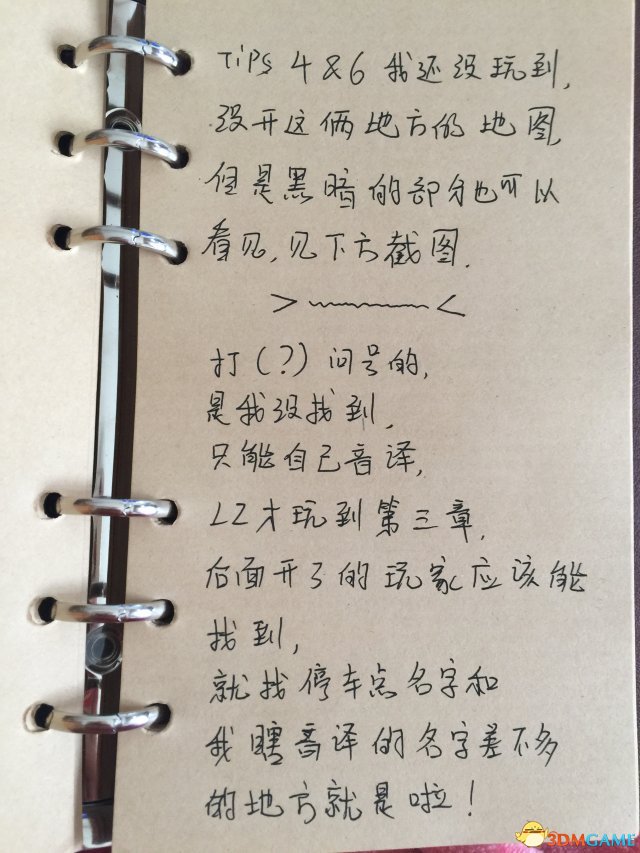 TiPS 4&6 我还没玩到,
没开这俩地方的地图,
但是黑暗的部分也可以
看见,见下方截图.
打(?)问号的,
是我没找到,
只能自己音译,
LZ才玩到第三章,
后面开了的玩家应该能
找到,
就找停车点名字和
我瞎音译的名字差不多
的地方就是啦!
3DMGAME